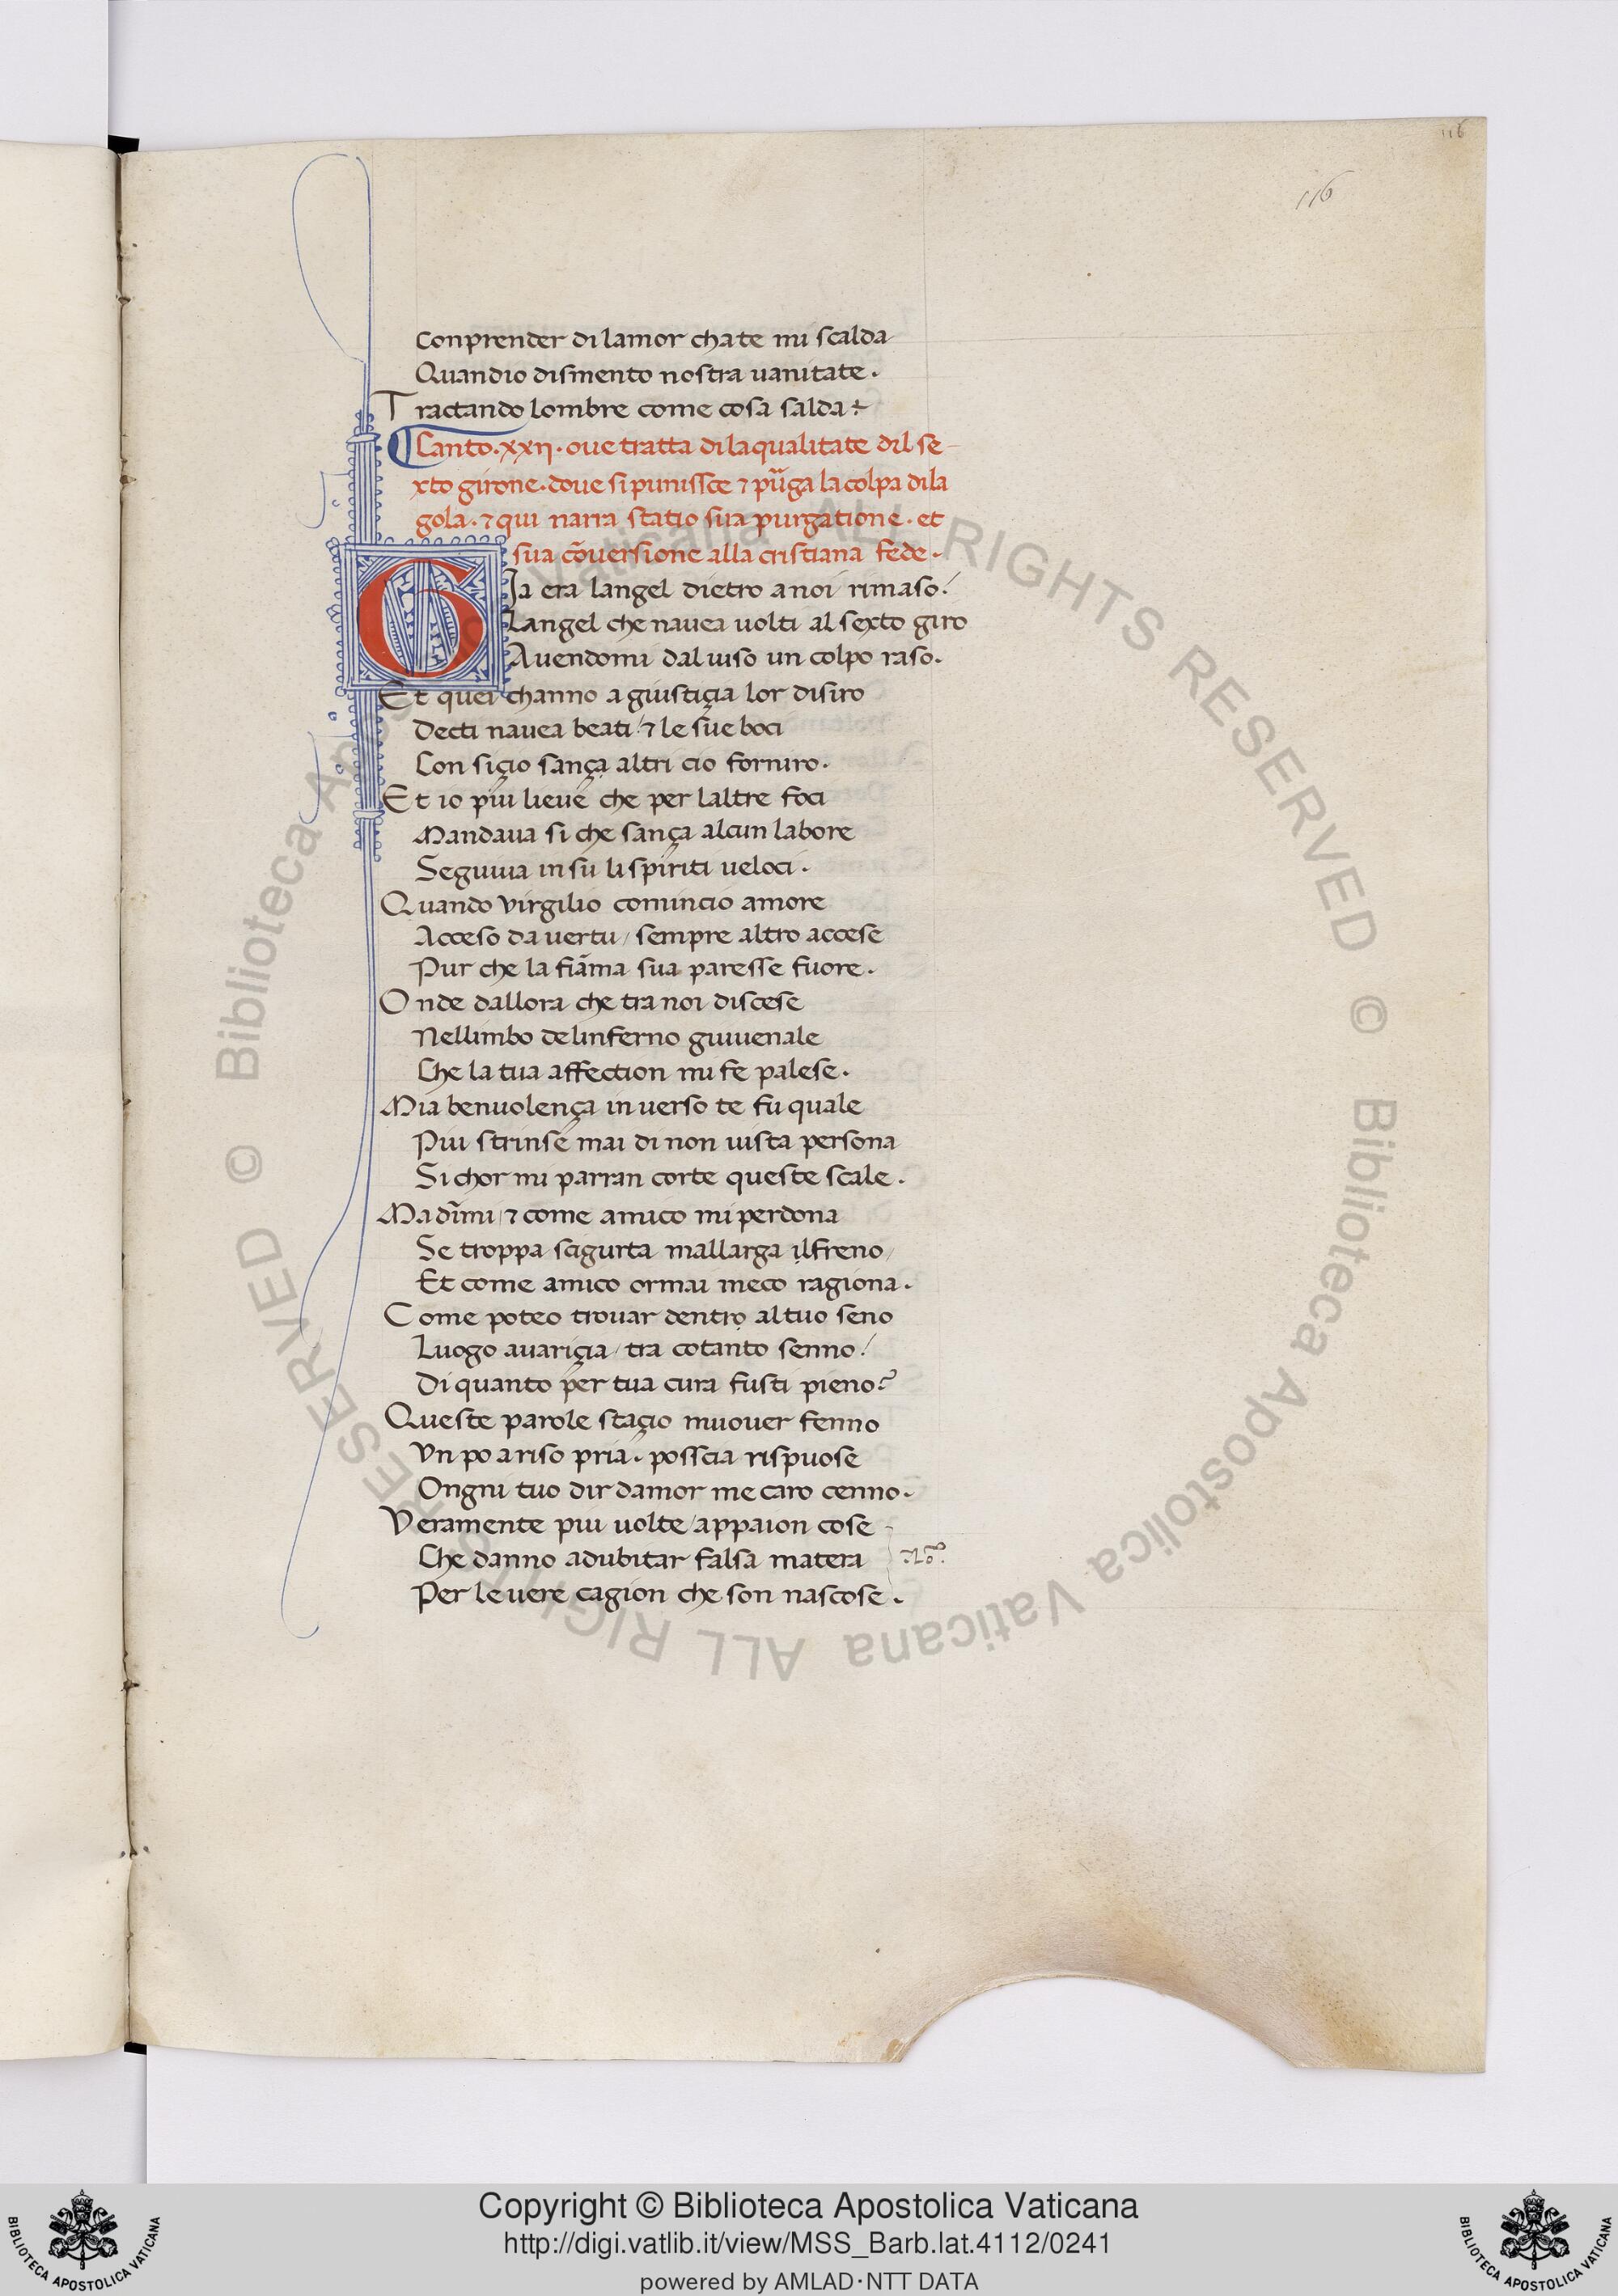 116
116
Conprender di lamor chate mi scalda
Quandio dismento nostra uanitate.
Tractando lombre come cosa salda
Canto.xxii. oue tratta di la qualitate dil se-
xto girone. doue si punissce ⁊ pu̅ga la colpa di la
gola. ⁊ qui narra statio sua purgatione. et
sua co̅uersione alla cristiana fede.
GJa era langel dietro a noi rimaso!
Langel che nauea uolti al sexto giro
Auendomi dal uiso un colpo raso.
Et quei channo a giustiçia lor disiro
Decti nauea beati/ ⁊ le sue boci
Con siçio sança altri cio forniro.
Et io piu lieue che per laltre foci
Mandaua si che sança alcun labore
Seguiua in su li spiriti ueloci.
Quando virgilio comincio amore
Acceso da uertu/ sempre altro accese
Pur che la fia̅ma sua paresse fuore.
Onde dallora che tra noi discese
Nellimbo delinferno giuuenale
Che la tua affection mi fe palese.
Mia benuolença inuerso te fu quale
Piu strinse mai di non uista persona
Si chor mi parran corte queste scale.
Ma di̅mi/ ⁊ come amico mi perdona
Se troppa scigurta mallarga il freno/
Et come amico ormai meco ragiona.
Come poteo trouar dentro al tuo seno
Luogo auariçia/ tra cotanto senno!
Di quanto per tua cura fusti pieno?
Queste parole staçio muouer fenno
Vn po a riso pria. posscia rispuose
Ongni tuo dir damor me caro cenno.
Veramente piu uolte/ appaion cose
Che danno adubitar falsa matera
Per le uere cagion che son nascose.
© Biblioteca Apostolica Vaticana ALL RIGHTS RESERVED © Biblioteca Apostolica Vaticana ALL RIGHTS RESERVED
Copyright © Biblioteca Apostolica Vaticana
http://digi.vatlib.it/view/MSS_Barb.lat.4112/0241
powered by AMLAD·NTT DATA
BIBLIOTECA APOSTOLICA VATICANA
BIBLIOTECA APOSTOLICA VATICANA